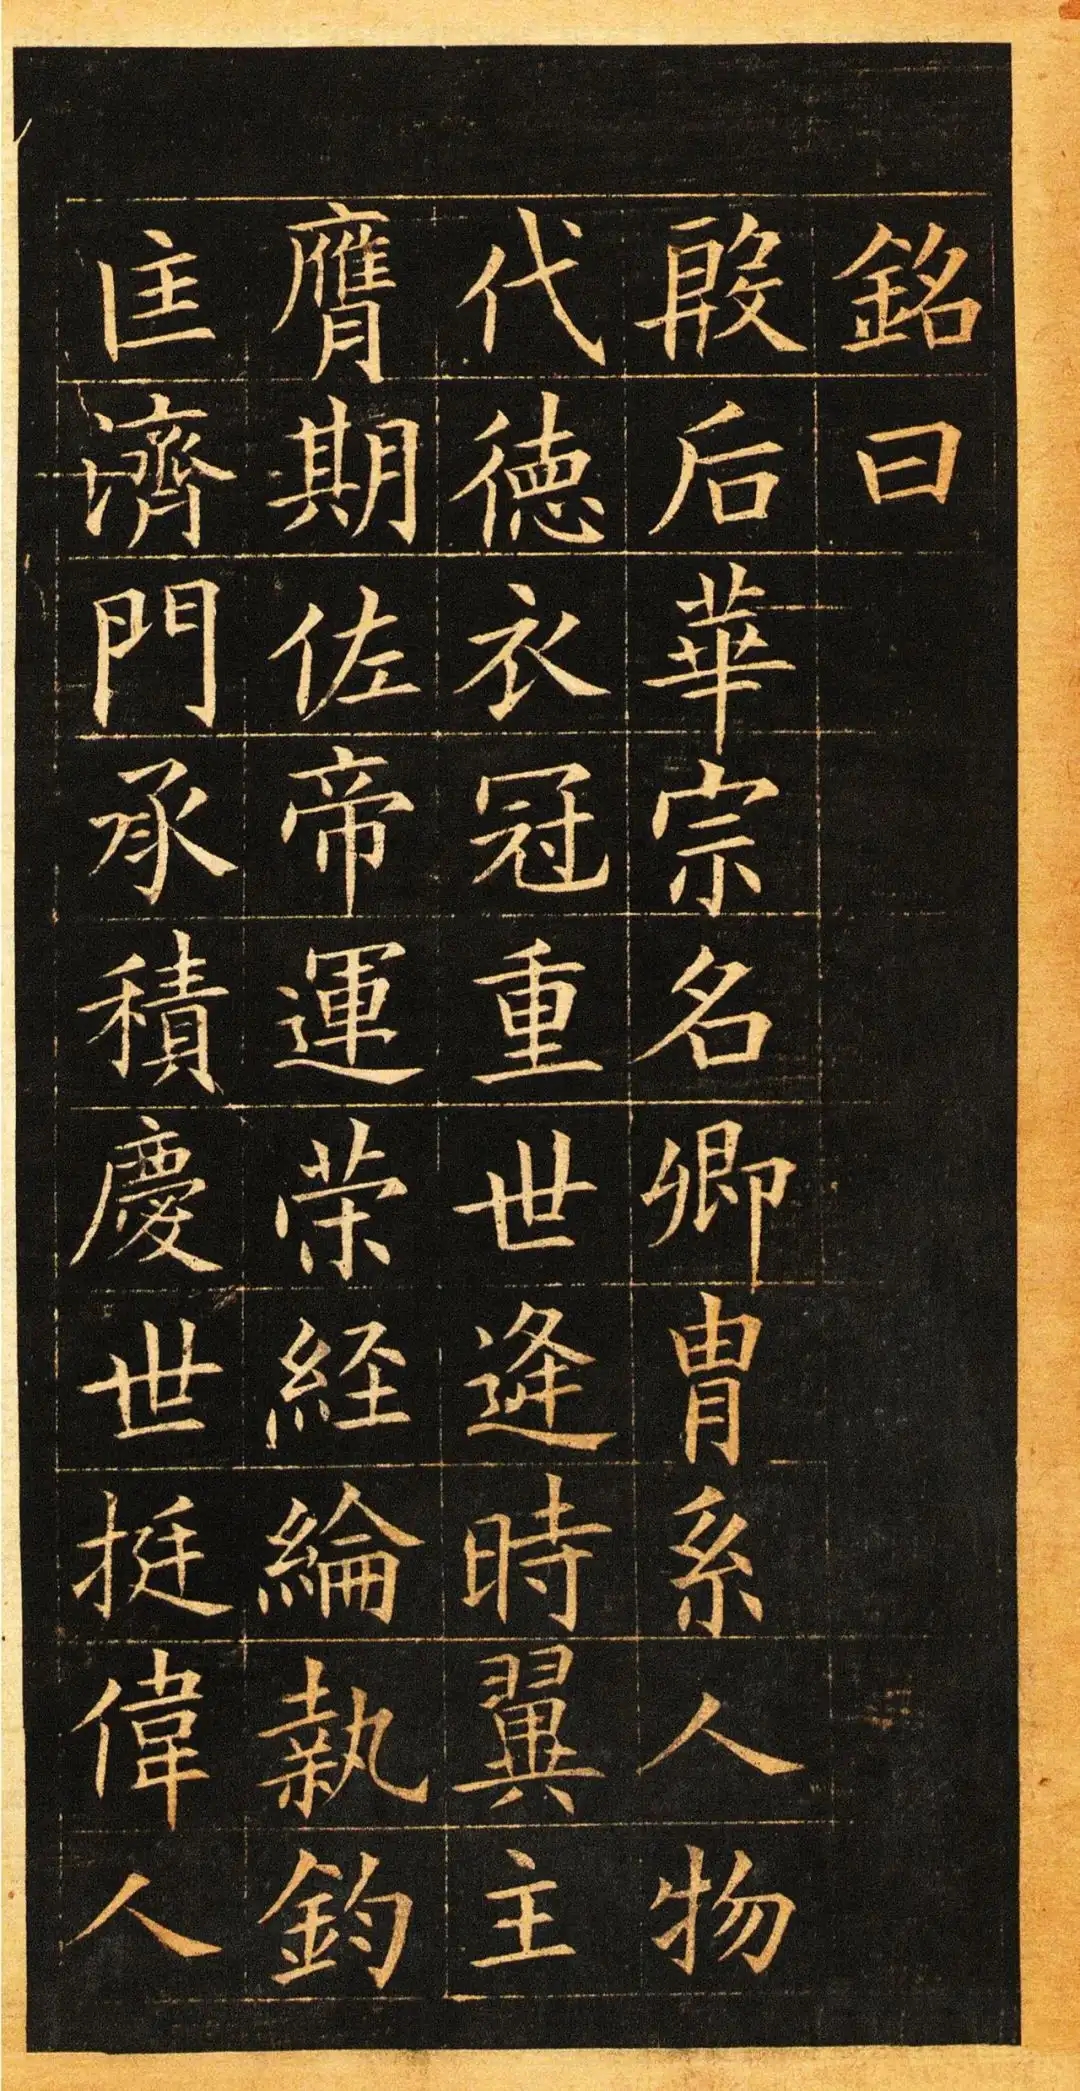 銘曰
殷后華宗名卿冑系人物
代徳衣冠重世逢時翼主
膺期佐帝運荣経綸執鈞
匡濟門承積慶世挺偉人